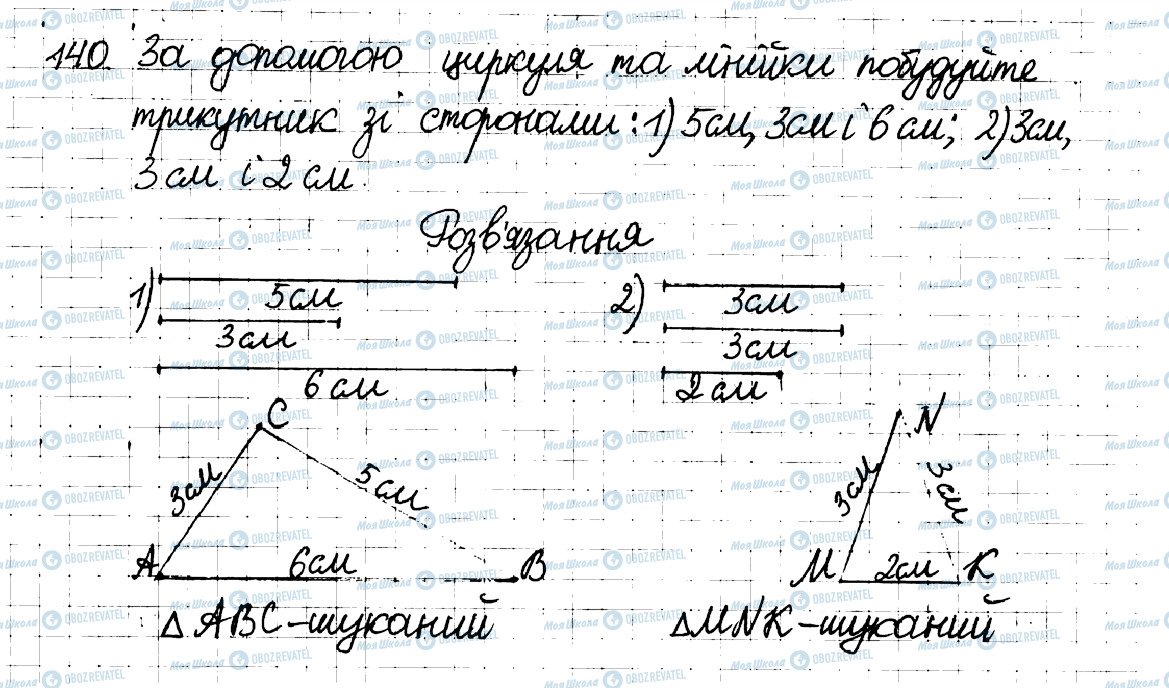 140. За допомогою циркуля та лінійки побудуйте
трикутник зі сторонами: 1) 5см, 3см і 6 см; 2) 3см,
3 см і 2 см.
Розв'язання
1)
5см
3см
6 см
2)
3см
3см
2 см
C
3см
5 см
A
6см
B
△ABC - шуканий
N
3см
3 см
M
2см
K
△MNK - шуканий
Моя Школа OBOZREVATEL